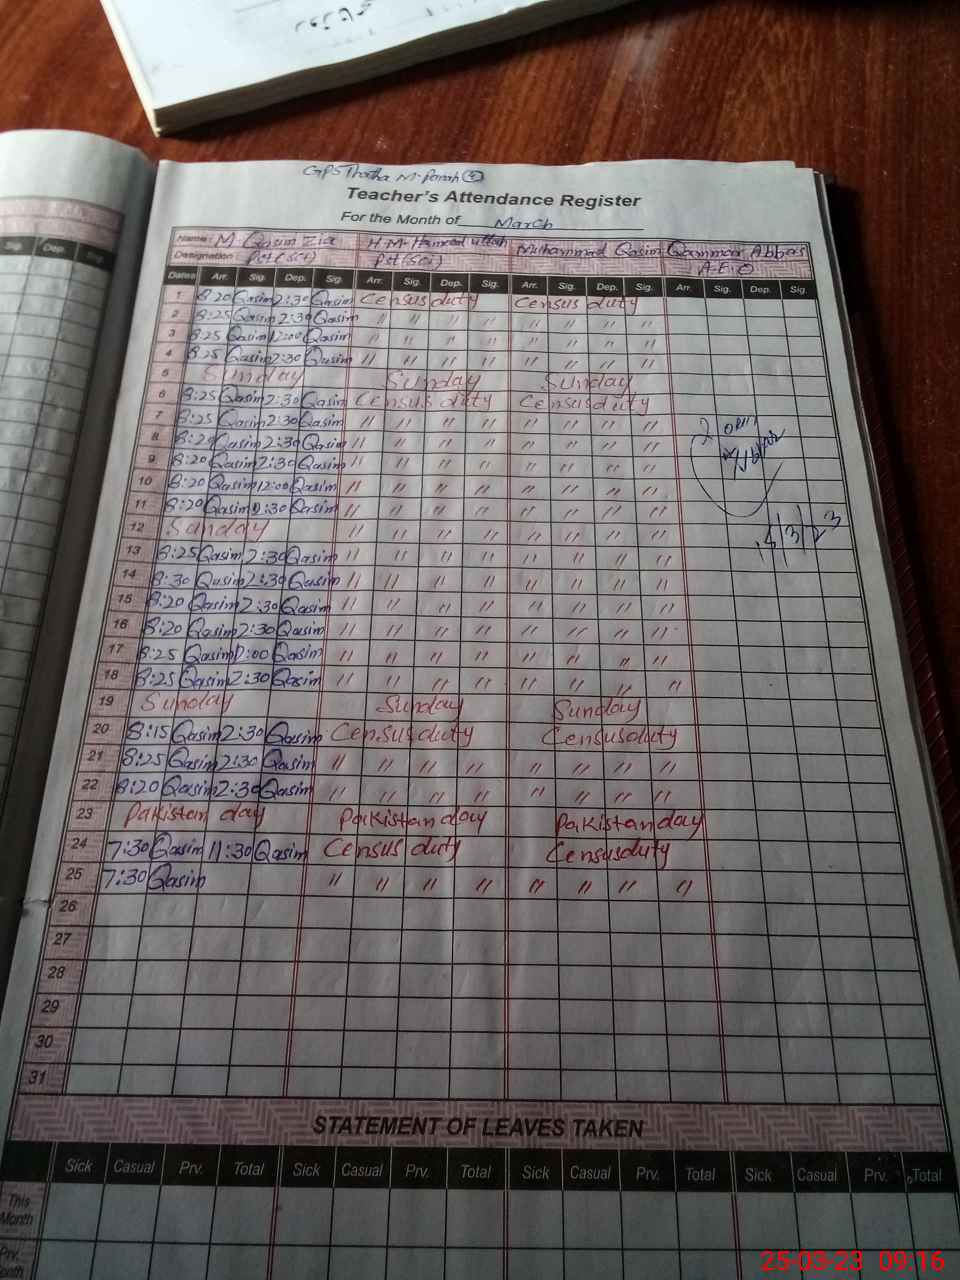 GPS Thatha M. Panah
Teacher's Attendance Register
For the Month of March
Name: M. Qasim Zia H.M. Hameedullah Muhammad Qasim Qammar Abbas
Designation: Pst (Sci) Pst (Sci) A.E.O
Dates Arr. Sig. Dep. Sig. Arr. Sig. Dep. Sig. Arr. Sig. Dep. Sig. Arr. Sig. Dep. Sig.
1 8:20 Qasim 2:30 Qasim Census duty Census duty
2 8:25 Qasim 2:30 Qasim " " " " " " " "
3 8:25 Qasim 12:00 Qasim " " " " " " " "
4 8:25 Qasim 2:30 Qasim " " " " " " " "
5 Sunday Sunday Sunday
6 8:25 Qasim 2:30 Qasim Census duty Census duty
7 8:25 Qasim 2:30 Qasim " " " " " " " "
8 8:20 Qasim 2:30 Qasim " " " " " " " "
9 8:20 Qasim 2:30 Qasim " " " " " " " "
10 8:20 Qasim 12:00 Qasim " " " " " " " "
11 8:20 Qasim 2:30 Qasim " " " " " " " "
12 Sunday " " " " " " " "
13 8:25 Qasim 2:30 Qasim " " " " " " " "
14 8:30 Qasim 2:30 Qasim " " " " " " " "
15 8:20 Qasim 2:30 Qasim " " " " " " " "
16 8:20 Qasim 2:30 Qasim " " " " " " " "
17 8:25 Qasim 12:00 Qasim " " " " " " " "
18 8:25 Qasim 2:30 Qasim " " " " " " " "
19 Sunday Sunday Sunday
20 8:15 Qasim 2:30 Qasim Census duty Census duty
21 8:25 Qasim 2:30 Qasim " " " " " " " "
22 8:20 Qasim 2:30 Qasim " " " " " " " "
23 Pakistan day Pakistan day Pakistan day
24 7:30 Qasim 11:30 Qasim Census duty Census duty
25 7:30 Qasim " " " " " " " "
26
27
28
29
30
31
STATEMENT OF LEAVES TAKEN
Sick Casual Prv. Total Sick Casual Prv. Total Sick Casual Prv. Total Sick Casual Prv. Total
This Month
Prv.
25-03-23 09:16